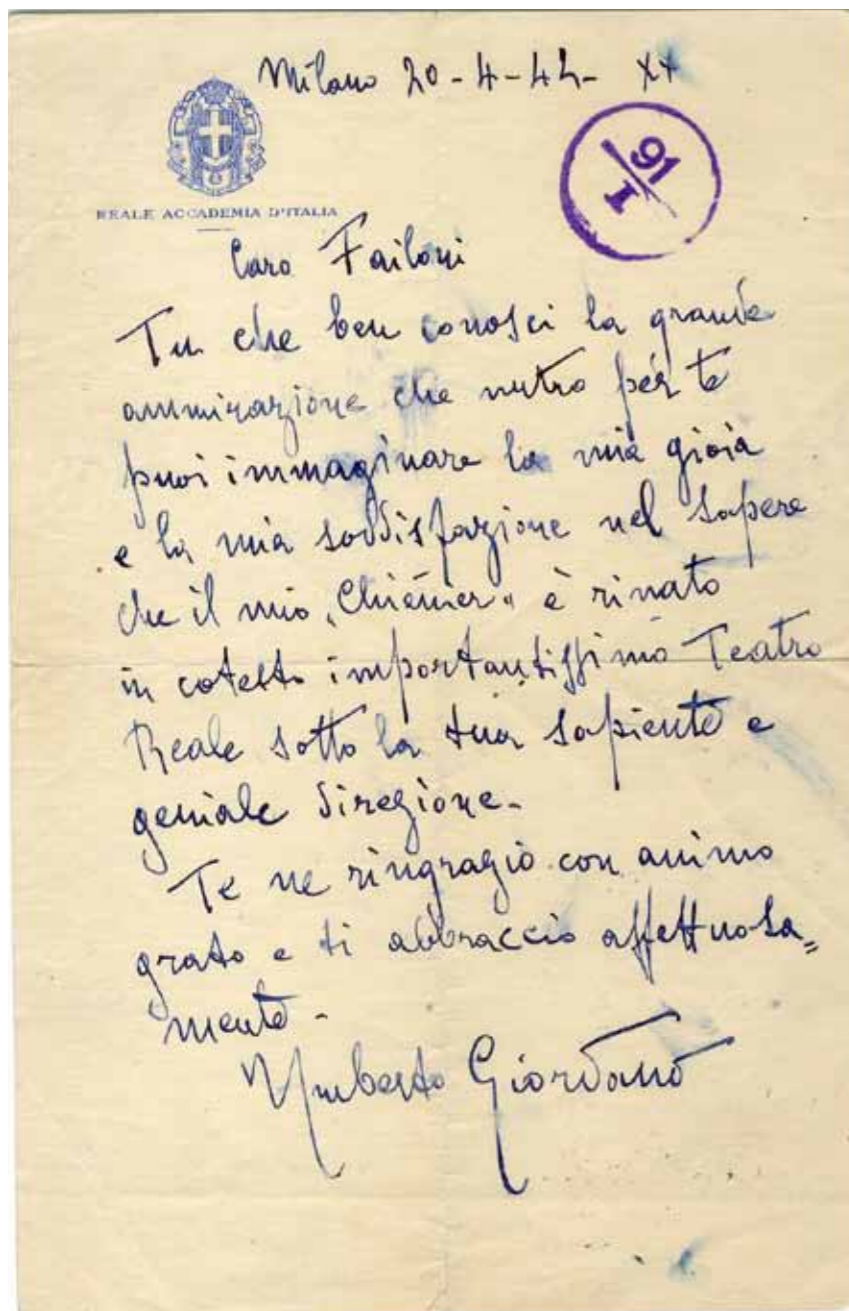 Milano 20-4-42- XX
REALE ACCADEMIA D'ITALIA
91
I
Caro Failoni
Tu che ben conosci la grande
ammirazione che nutro per te
puoi immaginare la mia gioia
e la mia soddisfazione nel sapere
che il mio „Chénier" è rinato
in cotesto importantissimo Teatro
Reale sotto la tua sapiente e
geniale direzione-
Te ne ringrazio con animo
grato e ti abbraccio affettuosa=
mente-
Umberto Giordano